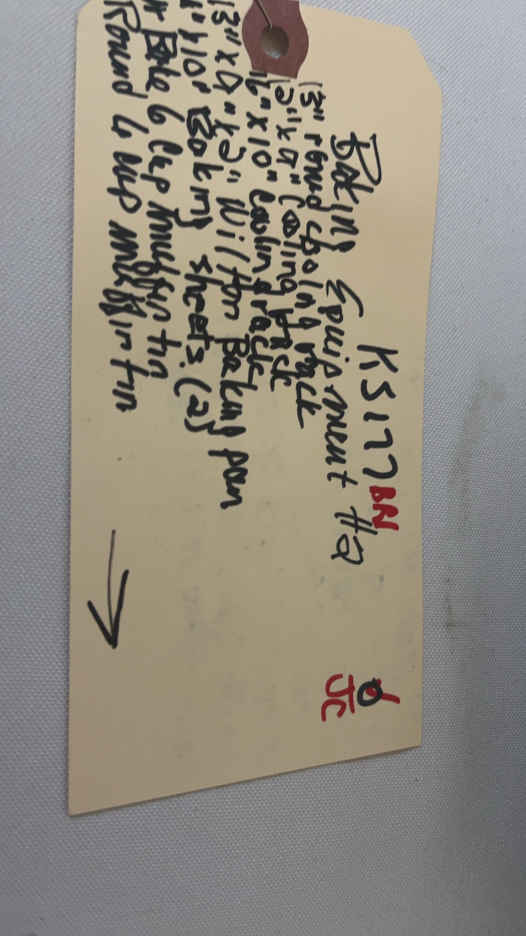 KS177 BN
Baking Equipment #2
13" round cooling rack
12" x 9" Cooling rack
16" x 10" Cooling rack
13" x 9" x 2" Wilton Baking pan
x 10" Baking sheets (2)
6 Cup muffin tin
Round 6 cup muffin tin
6
JC